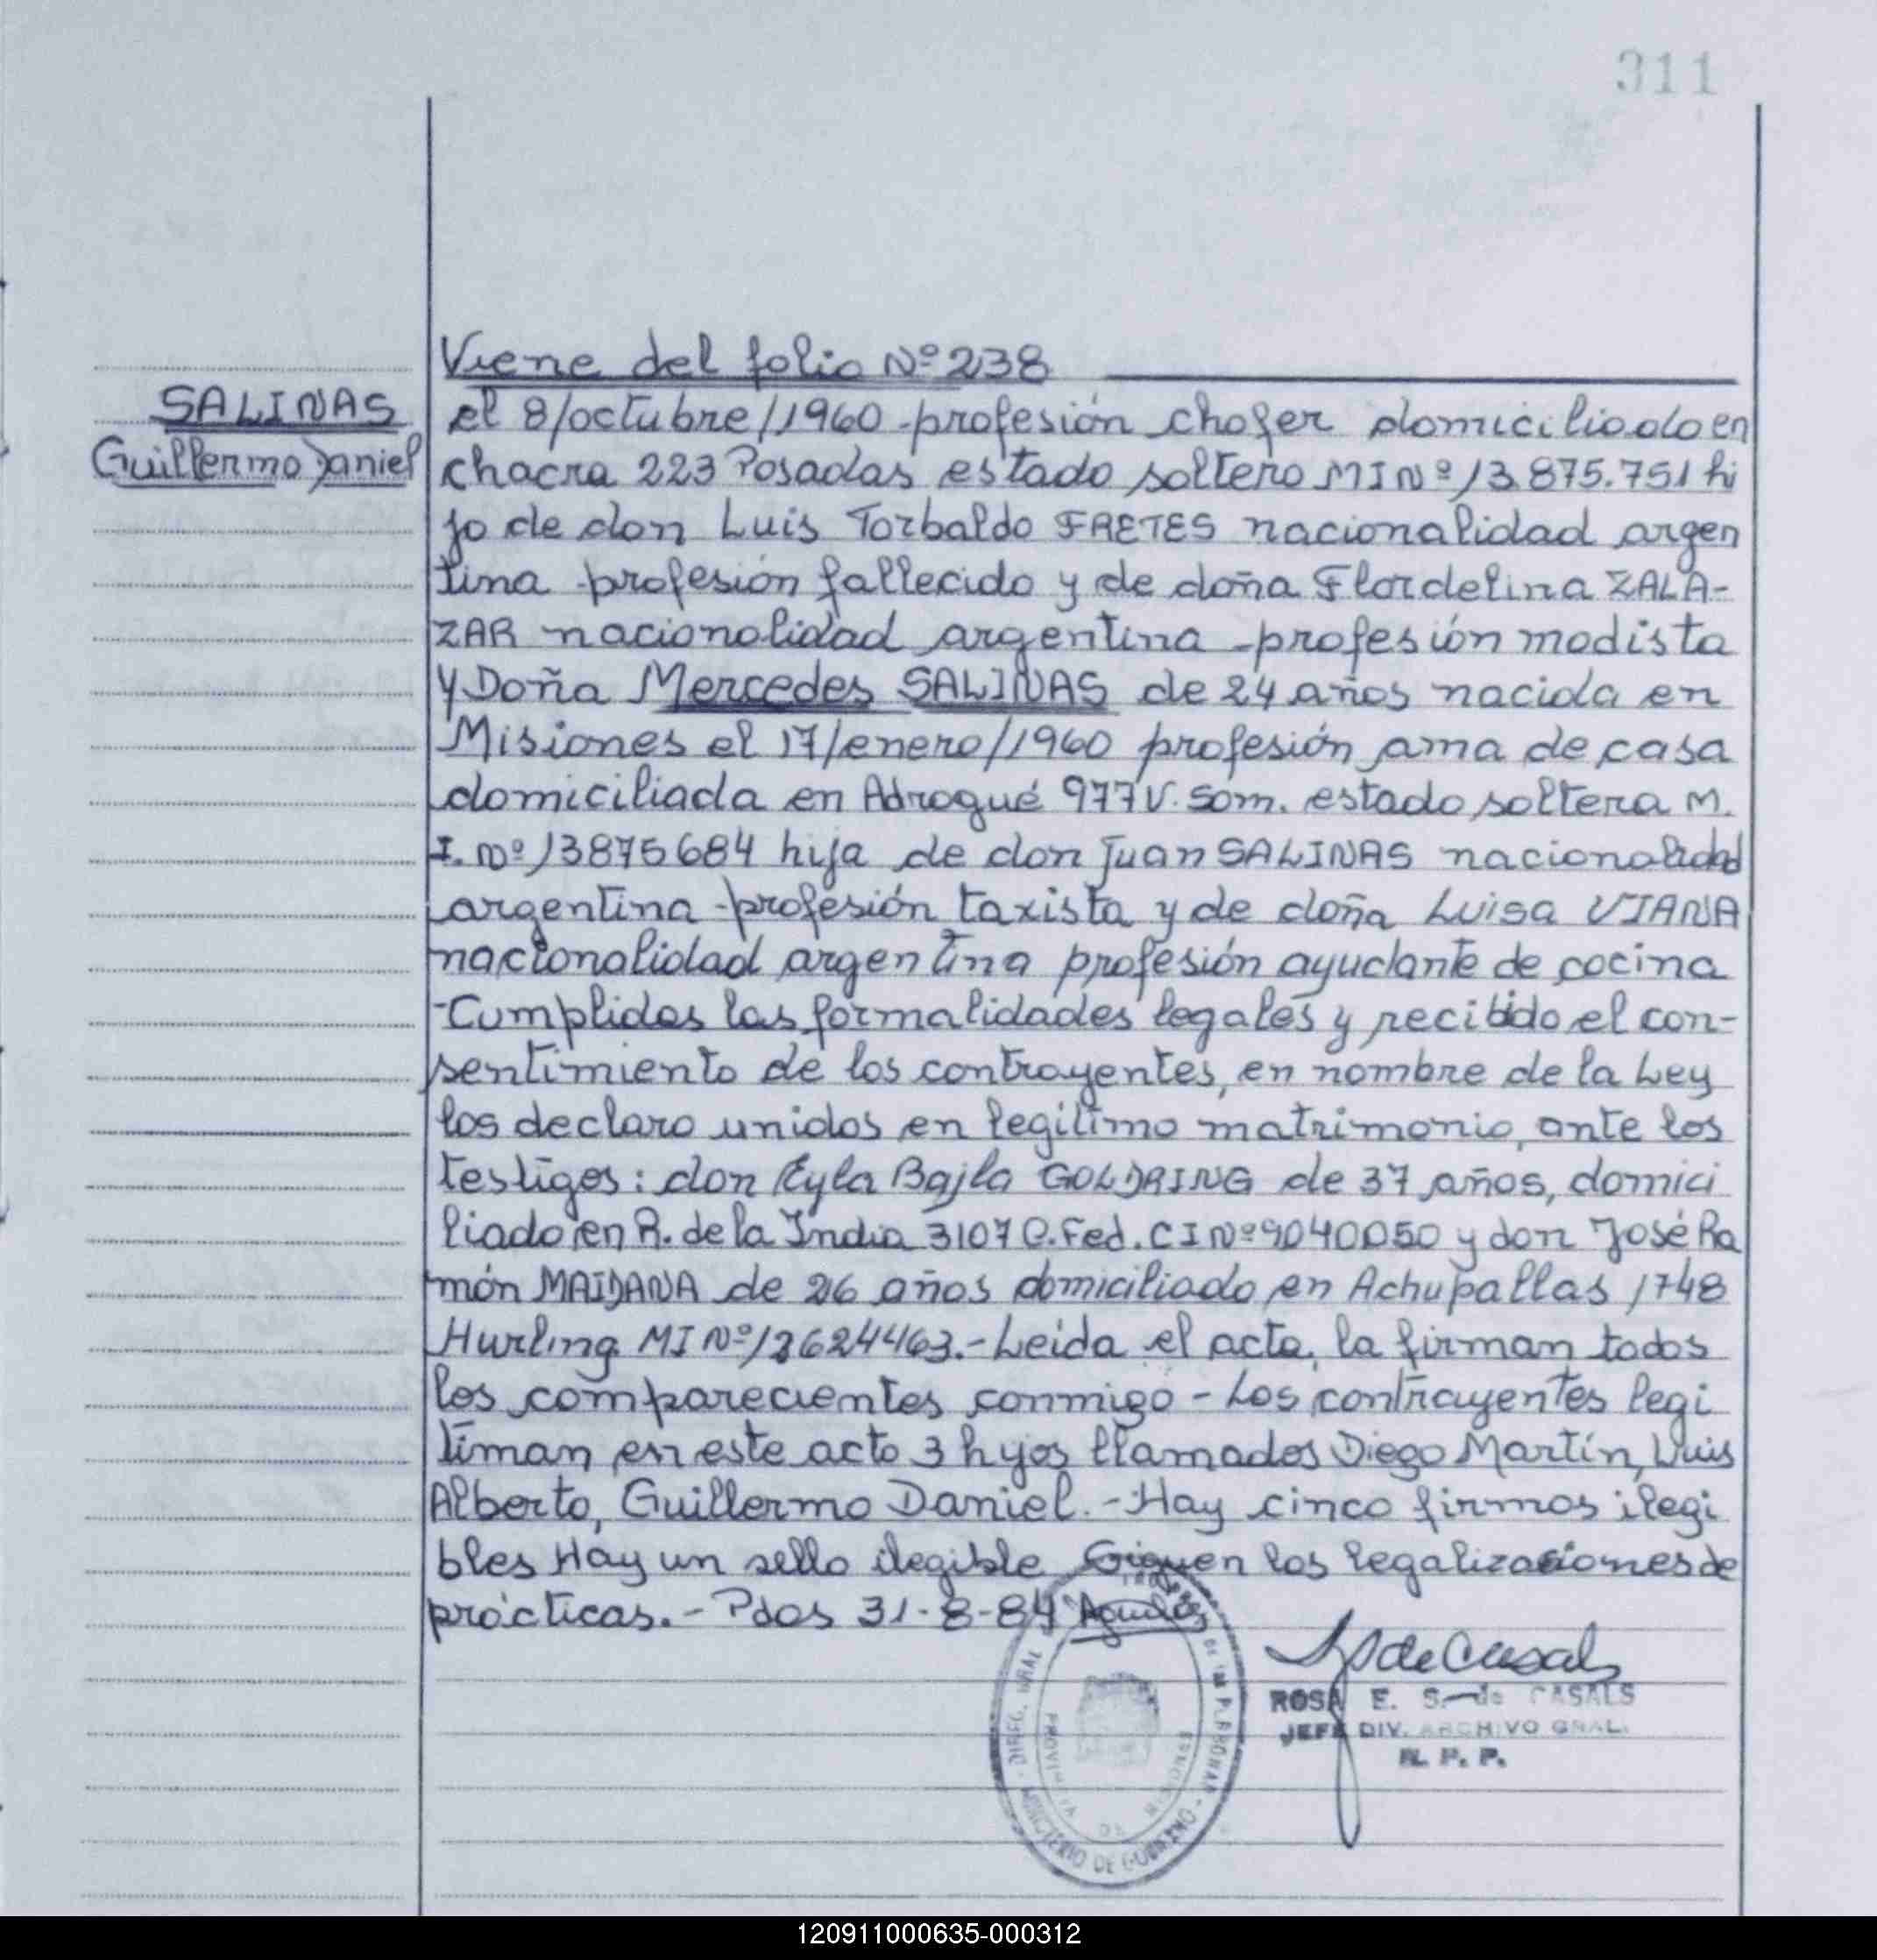 311
Viene del folio Nº 238
SALINAS
Guillermo Daniel
el 8/octubre/1960 profesión chofer domiciliado en
chacra 223 Posadas estado soltero MI Nº 13.875.751 hi
jo de don Luis Torbaldo FRETES nacionalidad argen
tina profesión fallecido y de doña Flordelina ZALA-
ZAR nacionalidad argentina profesión modista
Y Doña Mercedes SALINAS de 24 años nacida en
Misiones el 17/enero/1960 profesión ama de casa
domiciliada en Adrogué 977 V. Som. estado soltera M.
I. Nº 13875684 hija de don Juan SALINAS nacionalidad
argentina profesión taxista y de doña Luisa VIANA
nacionalidad argentina profesión ayudante de cocina
-Cumplidas las formalidades legales y recibido el con-
sentimiento de los contrayentes, en nombre de la Ley
los declaro unidos en legítimo matrimonio, ante los
testigos: don Eyla Bajla GOLDRING de 37 años, domici
liado en R. de la India 3107 C. Fed. CI Nº 9040050 y don José Ra
món MAIDANA de 26 años domiciliado en Achupallas 1748
Hurling. MI Nº 13624463.- Leída el acta, la firman todos
los comparecientes conmigo - Los contrayentes legi
timan en este acto 3 hijos llamados Diego Martín, Luis
Alberto, Guillermo Daniel. - Hay cinco firmas ilegi
bles Hay un sello ilegible Siguen las legalizaciones de
prácticas. - Pdas 31-8-84
ROSA E. S. de CASALS
JEFE DIV. ARCHIVO GRAL.
R. P. P.
DIREC. GRAL DE LAS PERSONAS
PROVINCIA DE MISIONES
MINISTERIO DE GOBIERNO
120911000635-000312